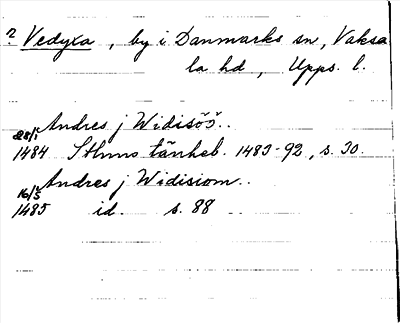 ? Vedyxa, by i Danmarks sn, Vaksa
la hd, Upps. l.
Andres j Widisöö..
28/1 1484 Sthms tänkeb. 1483-92, s. 30.
Andres j Widisiom..
16/5 1485 id. s. 88